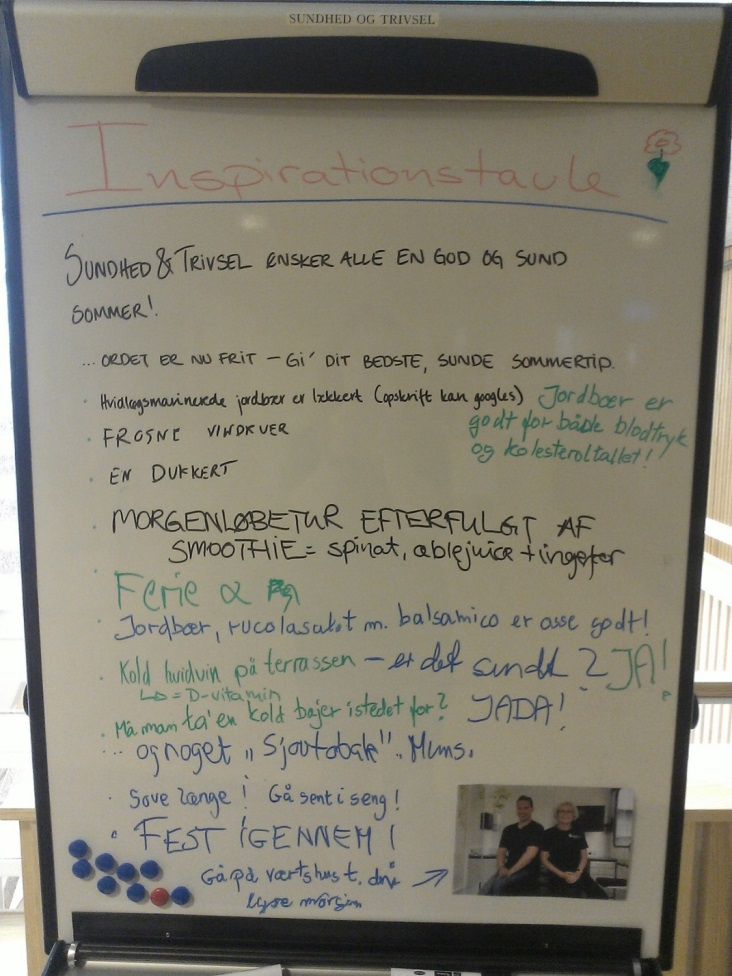 SUNDHED OG TRIVSEL
Inspirationstavle
SUNDHED & TRIVSEL ØNSKER ALLE EN GOD OG SUND
SOMMER!
... ORDET ER NU FRIT - GI' DIT BEDSTE, SUNDE SOMMERTIP.
· Hvidløgsmarinerede jordbær er lækkert (opskrift kan googles)
Jordbær er
godt for både blodtryk
og kolesteroltallet!
· FROSNE VINDRUER
· EN DUKKERT
· MORGENLØBETUR EFTERFULGT AF
SMOOTHIE = spinat, æblejuice + ingefær
· Ferie
· Jordbær, rucolasalat m. balsamico er osse godt!
· Kold hvidvin på terrassen - er det sundt? JA!
= D-vitamin
· Må man ta' en kold bajer istedet for? JADA!
... og noget "Sjovtobak". Mums.
· Sove længe! Gå sent i seng!
· FEST IGENNEM!
Gå på værtshus t. den
lyse morgen